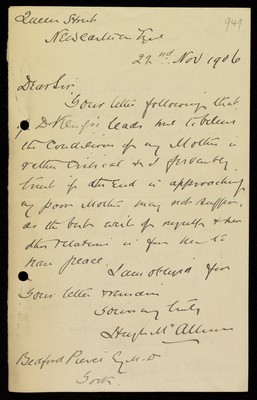 Queen Street
949
Newcastle on Tyne
22nd Nov 1906
Dear Sir,
Your letter following that
of Dr leads me to believe
the Condition of my Mother is
rather Critical & I fervently
trust if the End is approaching
my poor Mother may not suffer,
as the best wish of myself & her
other relations is for her to
have peace.
I am obliged for
your letter & remain
Yours very truly
Hugh McCallum
Bedford Pierce Esq M.D
York.